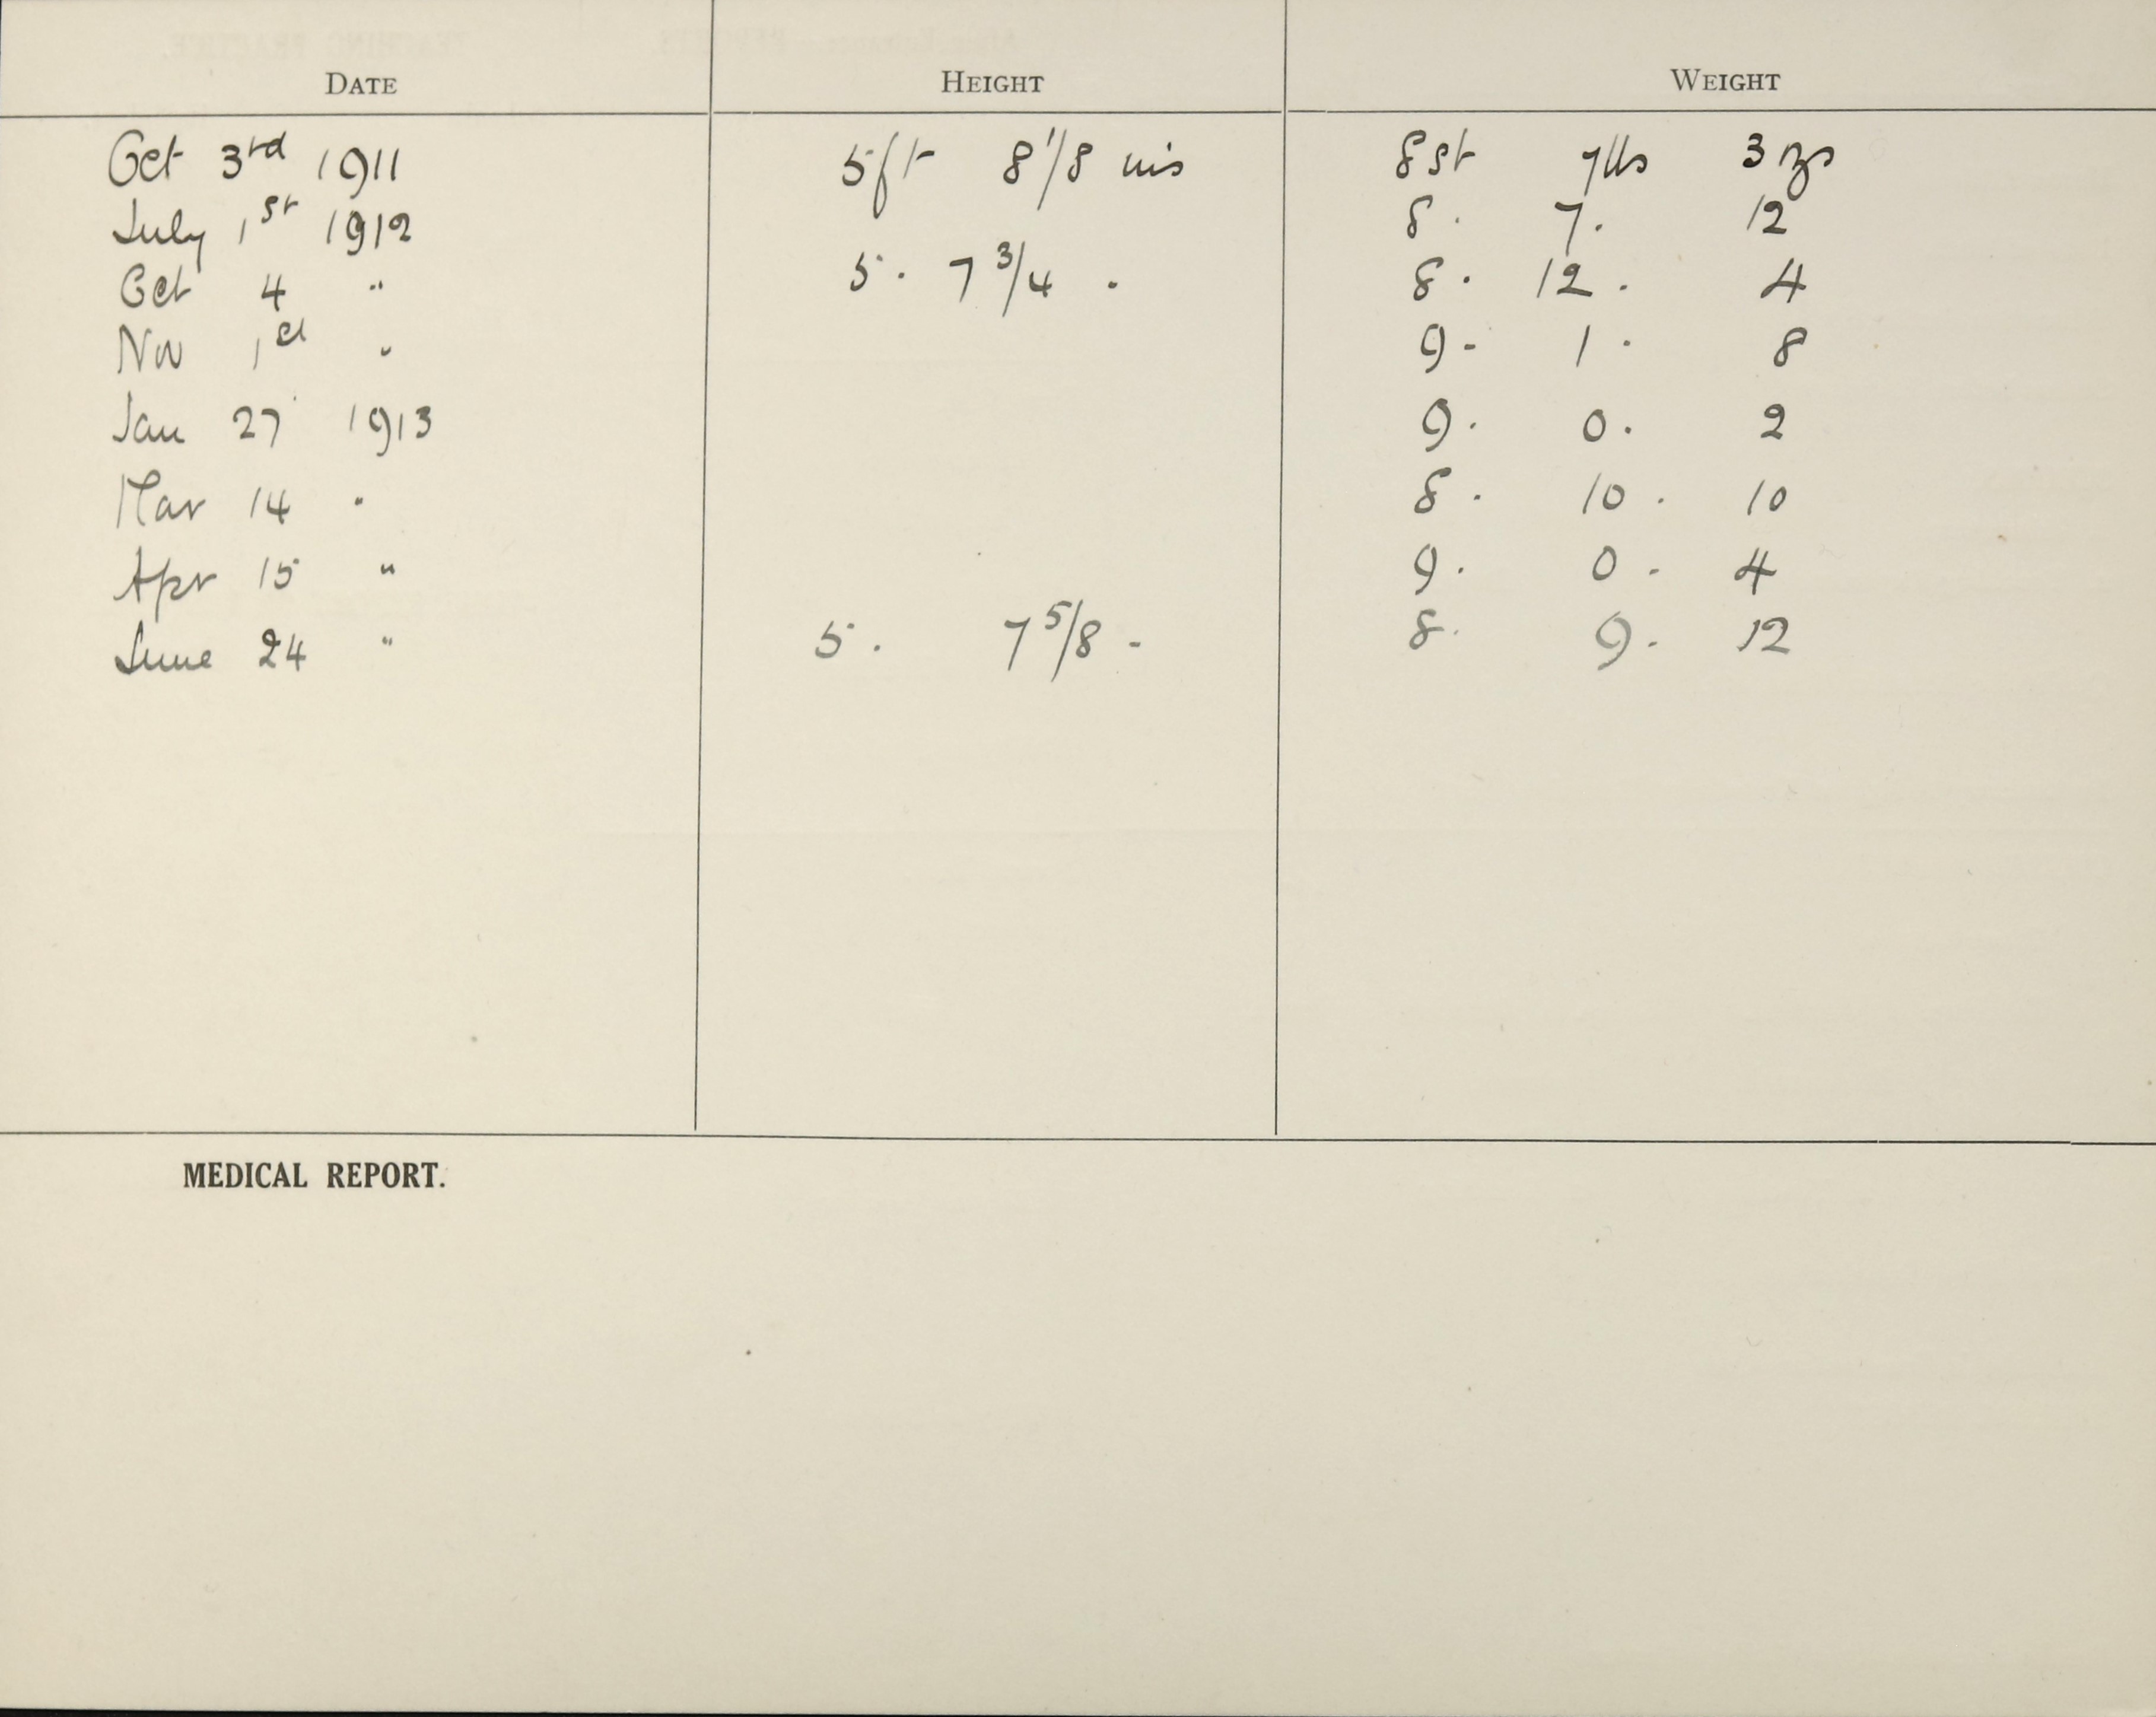 DATE HEIGHT WEIGHT
Oct 3rd 1911 5ft 8 1/8 ins 8st 7lbs 3 ozs
July 1st 1912 8. 7. 12
Oct 4 " 5. 7 3/4 . 8. 12. 4
Nov 1st " 9- 1. 8
Jan 27 1913 9. 0. 2
Mar 14 " 8. 10. 10
Apr 15 " 9. 0- 4
June 24 " 5. 7 5/8 - 8. 9. 12
MEDICAL REPORT.